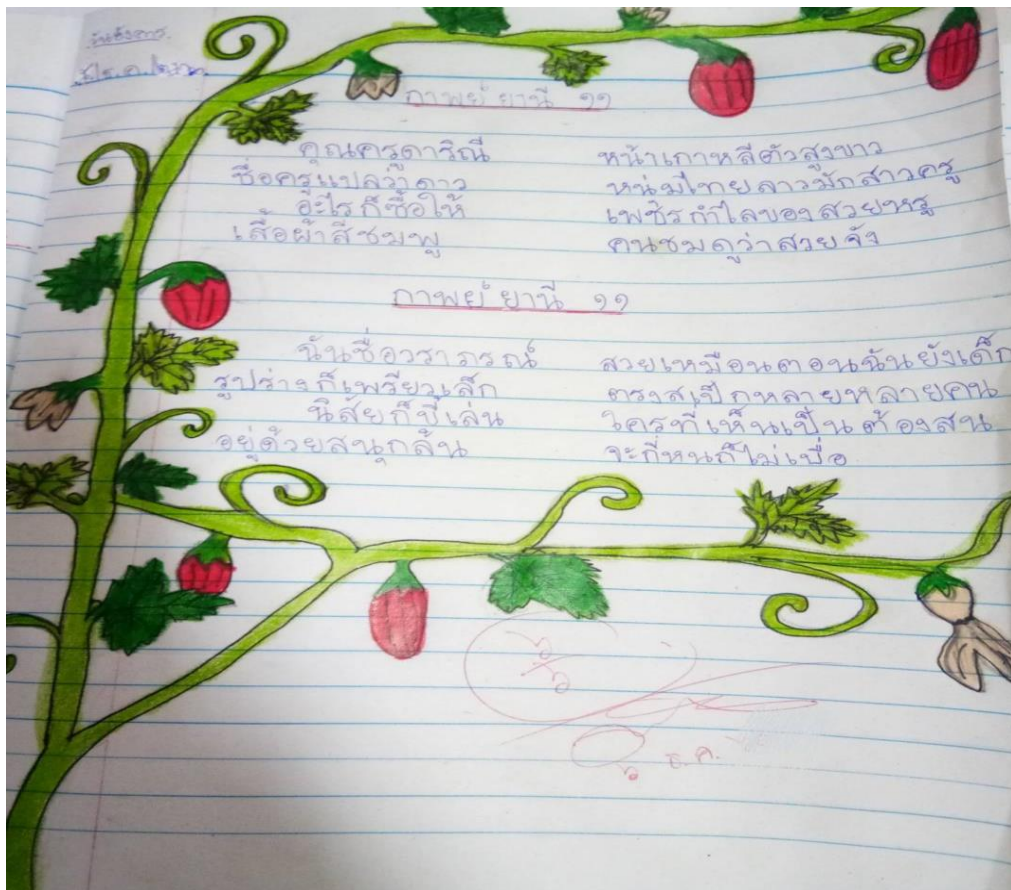 วันอังคาร
กาพย์ ยานี ๑๑
คุณครูดาริณี หน้าเกาหลีตัวสูงขาว
ชื่อครูแปลว่าดาว หนุ่มไทยลาวมักสาวครู
อะไรก็ซื้อให้ เพชรกำไลของสวยหรู
เสื้อผ้าสีชมพู คนชมดูว่าสวยจัง
กาพย์ ยานี ๑๑
ฉันชื่อวราภรณ์ สวยเหมือนตอนฉันยังเด็ก
รูปร่างก็เพรียวเล็ก ตรงสเป็กหลายหลายคน
นิสัยก็ขี้เล่น ใครที่เห็นเป็นต้องสน
อยู่ด้วยสนุกล้น จะกี่หนก็ไม่เบื่อ
ธ.ค.